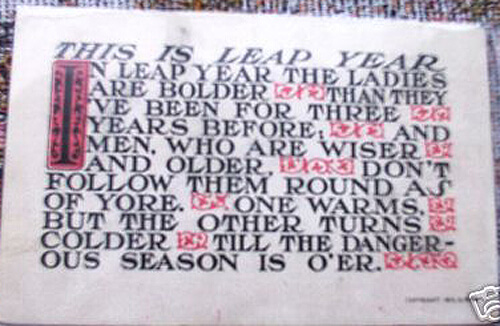 THIS IS LEAP YEAR
IN LEAP YEAR THE LADIES
ARE BOLDER THAN THEY
'VE BEEN FOR THREE
YEARS BEFORE; AND
MEN, WHO ARE WISER
AND OLDER, DON'T
FOLLOW THEM ROUND AS
OF YORE. ONE WARMS,
BUT THE OTHER TURNS
COLDER TILL THE DANGER-
OUS SEASON IS O'ER.
COPYRIGHT